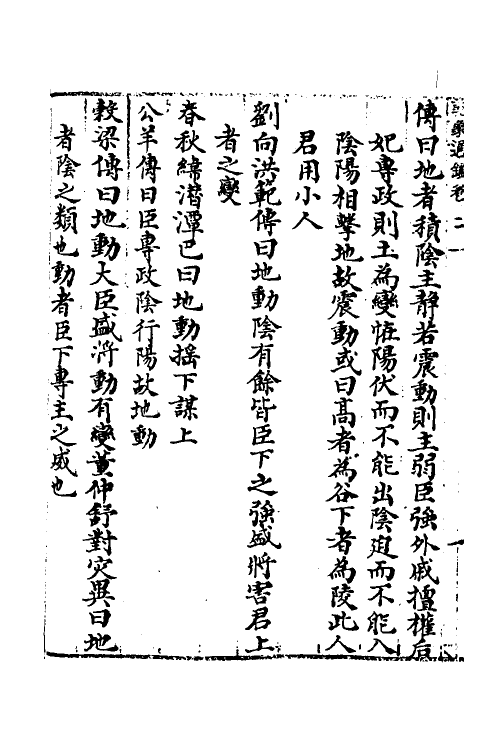 象通鑑卷二
一
傳曰地者積陰主靜若震動則主弱臣強外戚擅權后
妃專政則土為變恠陽伏而不能出陰迫而不能入
陰陽相擊地故震動或曰髙者為谷下者為陵此人
君用小人
劉向洪範傳曰地動陰有餘皆臣下之強盛將害君上
者之變
春秋緯潛潭巴曰地動揺下謀上
公羊傳曰臣專政陰行陽故地動
穀梁傳曰地動大臣盛將動有變董仲舒對災異曰地
者陰之類也動者臣下專主之威也